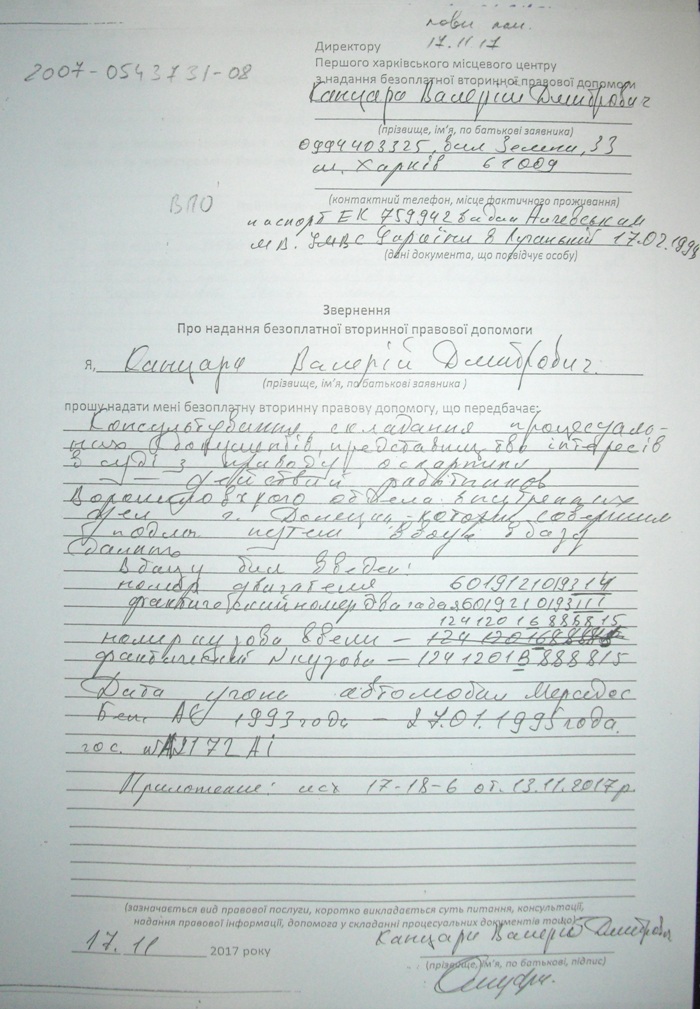 17.11.17
Директору
Першого харківського місцевого центру
з надання безоплатної вторинної правової допомоги
2007-0543731-08
Канцара Валерій Дмитрович
(прізвище, ім'я, по батькові заявника)
0994403325, 33
м. Харків 61009
(контактний телефон, місце фактичного проживання)
ВПО
паспорт ЕК 759942
МВ. УМВС України в Луганській 17.02.199
(дані документа, що посвідчує особу)
Звернення
Про надання безоплатної вторинної правової допомоги
я, Канцара Валерій Дмитрович.
(прізвище, ім'я, по батькові заявника )
прошу надати мені безоплатну вторинну правову допомогу, що передбачає:
Консультування, складання процесуаль-
них документів, представництво інтересів
в суді з приводу оскарження
действий работников
Ворошиловского отдела внутренних
дел г. Донецка, которые совершили
подлог путем ввода в базу
данных
В базу был введен:
номер двигателя 60191210193114
фактический номер двигателя
124120168888815
номер кузова ввели —
фактический N кузова — 12412013888815
Дата угона автомобиля Мерседес
Бенц 1993 года — 27.01.1995 года.
гос. 2172
Приложение: исх 17-18-6 от. 13.11.2017р
(зазначається вид правової послуги, коротко викладається суть питання, консультації,
надання правової інформації, допомога у складанні процесуальних документів тощо)
Канцара Валерій Дмитрович
17.11 2017 року
(прізвище, ім'я, по батькові, підпис)